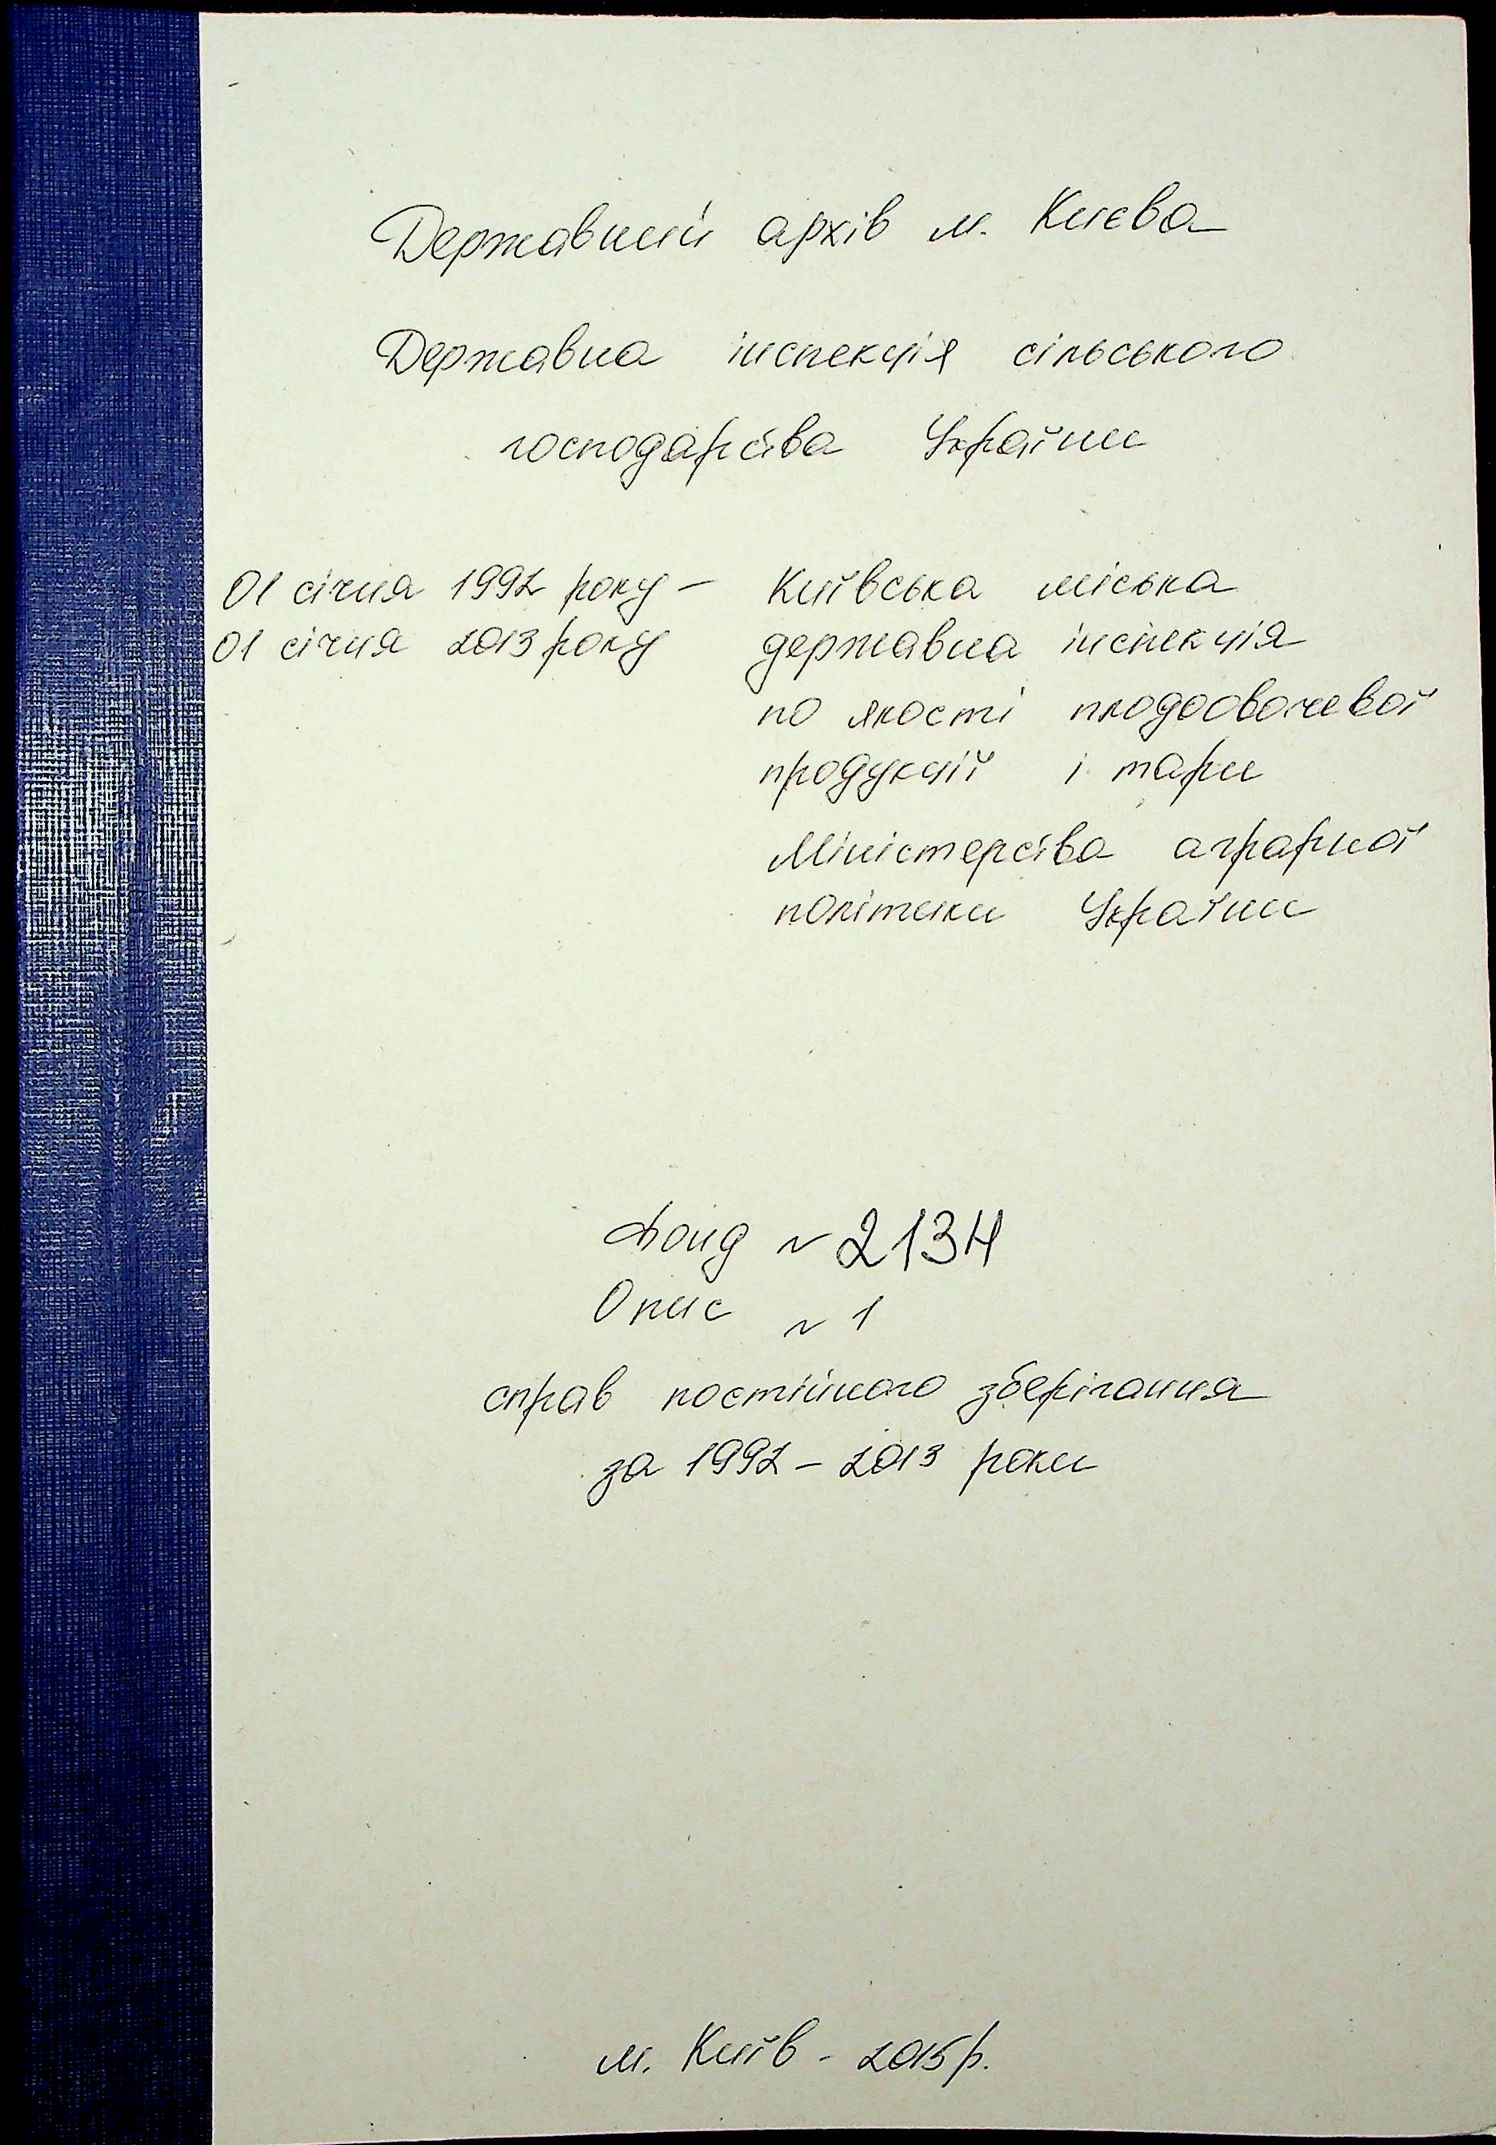 Державний архів м. Києва
Державна інспекція сільського
господарства України
01 січня 1992 року – Київська міська
01 січня 2013 року державна інспекція
по якості плодоовочевої
продукції і тари
Міністерства аграрної
політики України
Фонд № 2134
Опис № 1
справ постійного зберігання
за 1992 – 2013 роки
м. Київ - 2015 р.